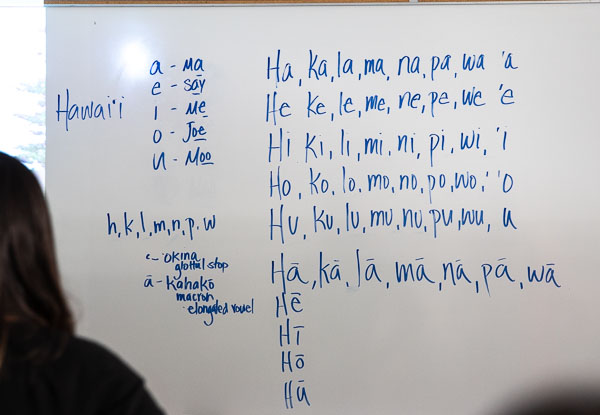 Hawai'i
a - ma
e - say
i - me
o - Joe
u - Moo
h, k, l, m, n, p, w
‘ - ‘okina
glottal stop
ā - kahakō
macron
elongated vowel
Ha, ka, la, ma, na, pa, wa 'a
He ke, le, me, ne, pe, we 'e
Hi ki, li, mi, ni, pi, wi, 'i
Ho, ko, lo, mo, no, po, wo, ' 'o
Hu, ku, lu, mu, nu, pu, wu, u
Hā, kā, lā, mā, nā, pā, wā
Hē
Hī
Hō
Hū